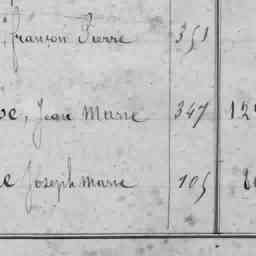 , françon Pierre 351
oe, Jean Marie 347 12
e Joseph Marie 105